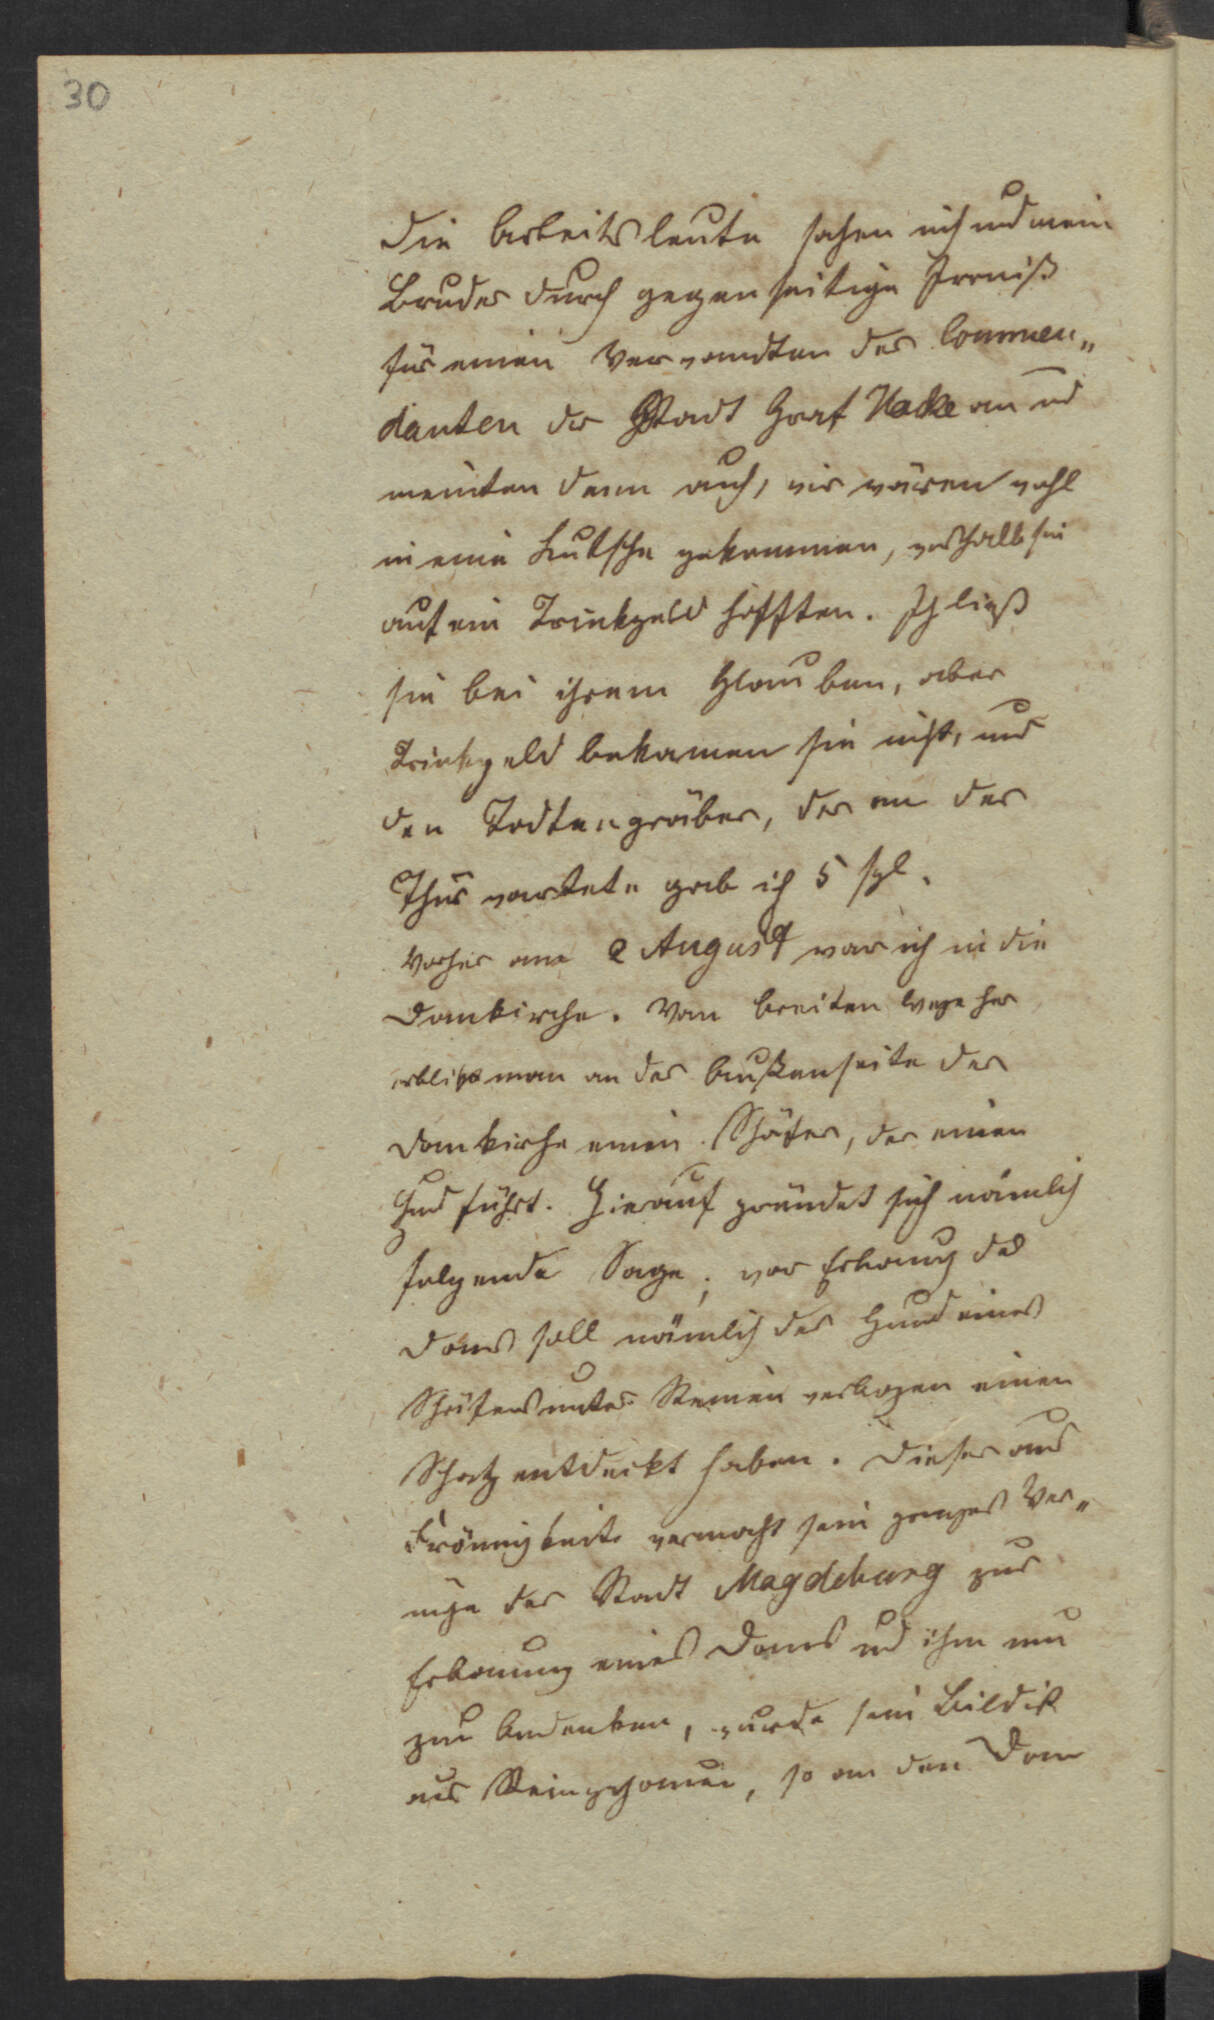 30
Die Arbeitsleute sahen mich und mein
Bruder durch gegenseitige Irrniß
für einen Verwandten des Commen„
danten der Stadt Graf Hacke an und
meinten denn auch, wir wären wohl
in eine Kutsche gekommen, weshalb sie
auf ein Trinkgeld hofften. Ich ließ
sie bei ihrem Glauben, aber
Trinkgeld bekamen sie nicht, und
den Todtengräber, der an der
Thür wartete gab ich 5 sgl.
Vorher am 2 August war ich in die
Domkirche. Vom breiten Wege her
erblickt man an der Außenseite der
Domkirche einen Schäfer, der einen
Hund führt. Hierauf gründet sich nämlich
folgende Sage; vor Erbauung des
Doms soll nämlich der Hund eines
Schäfers unter Steinen verborgen einen
Schatz entdeckt haben. Dieser aus
Frömigkeit vermacht sein ganzes Ver„
möge der Stadt Magdeburg zur
Erbauung eines Doms und ihm nun
zum Andenken, wurde sein Bildiß
aus Stein gehauen, so an den Dom